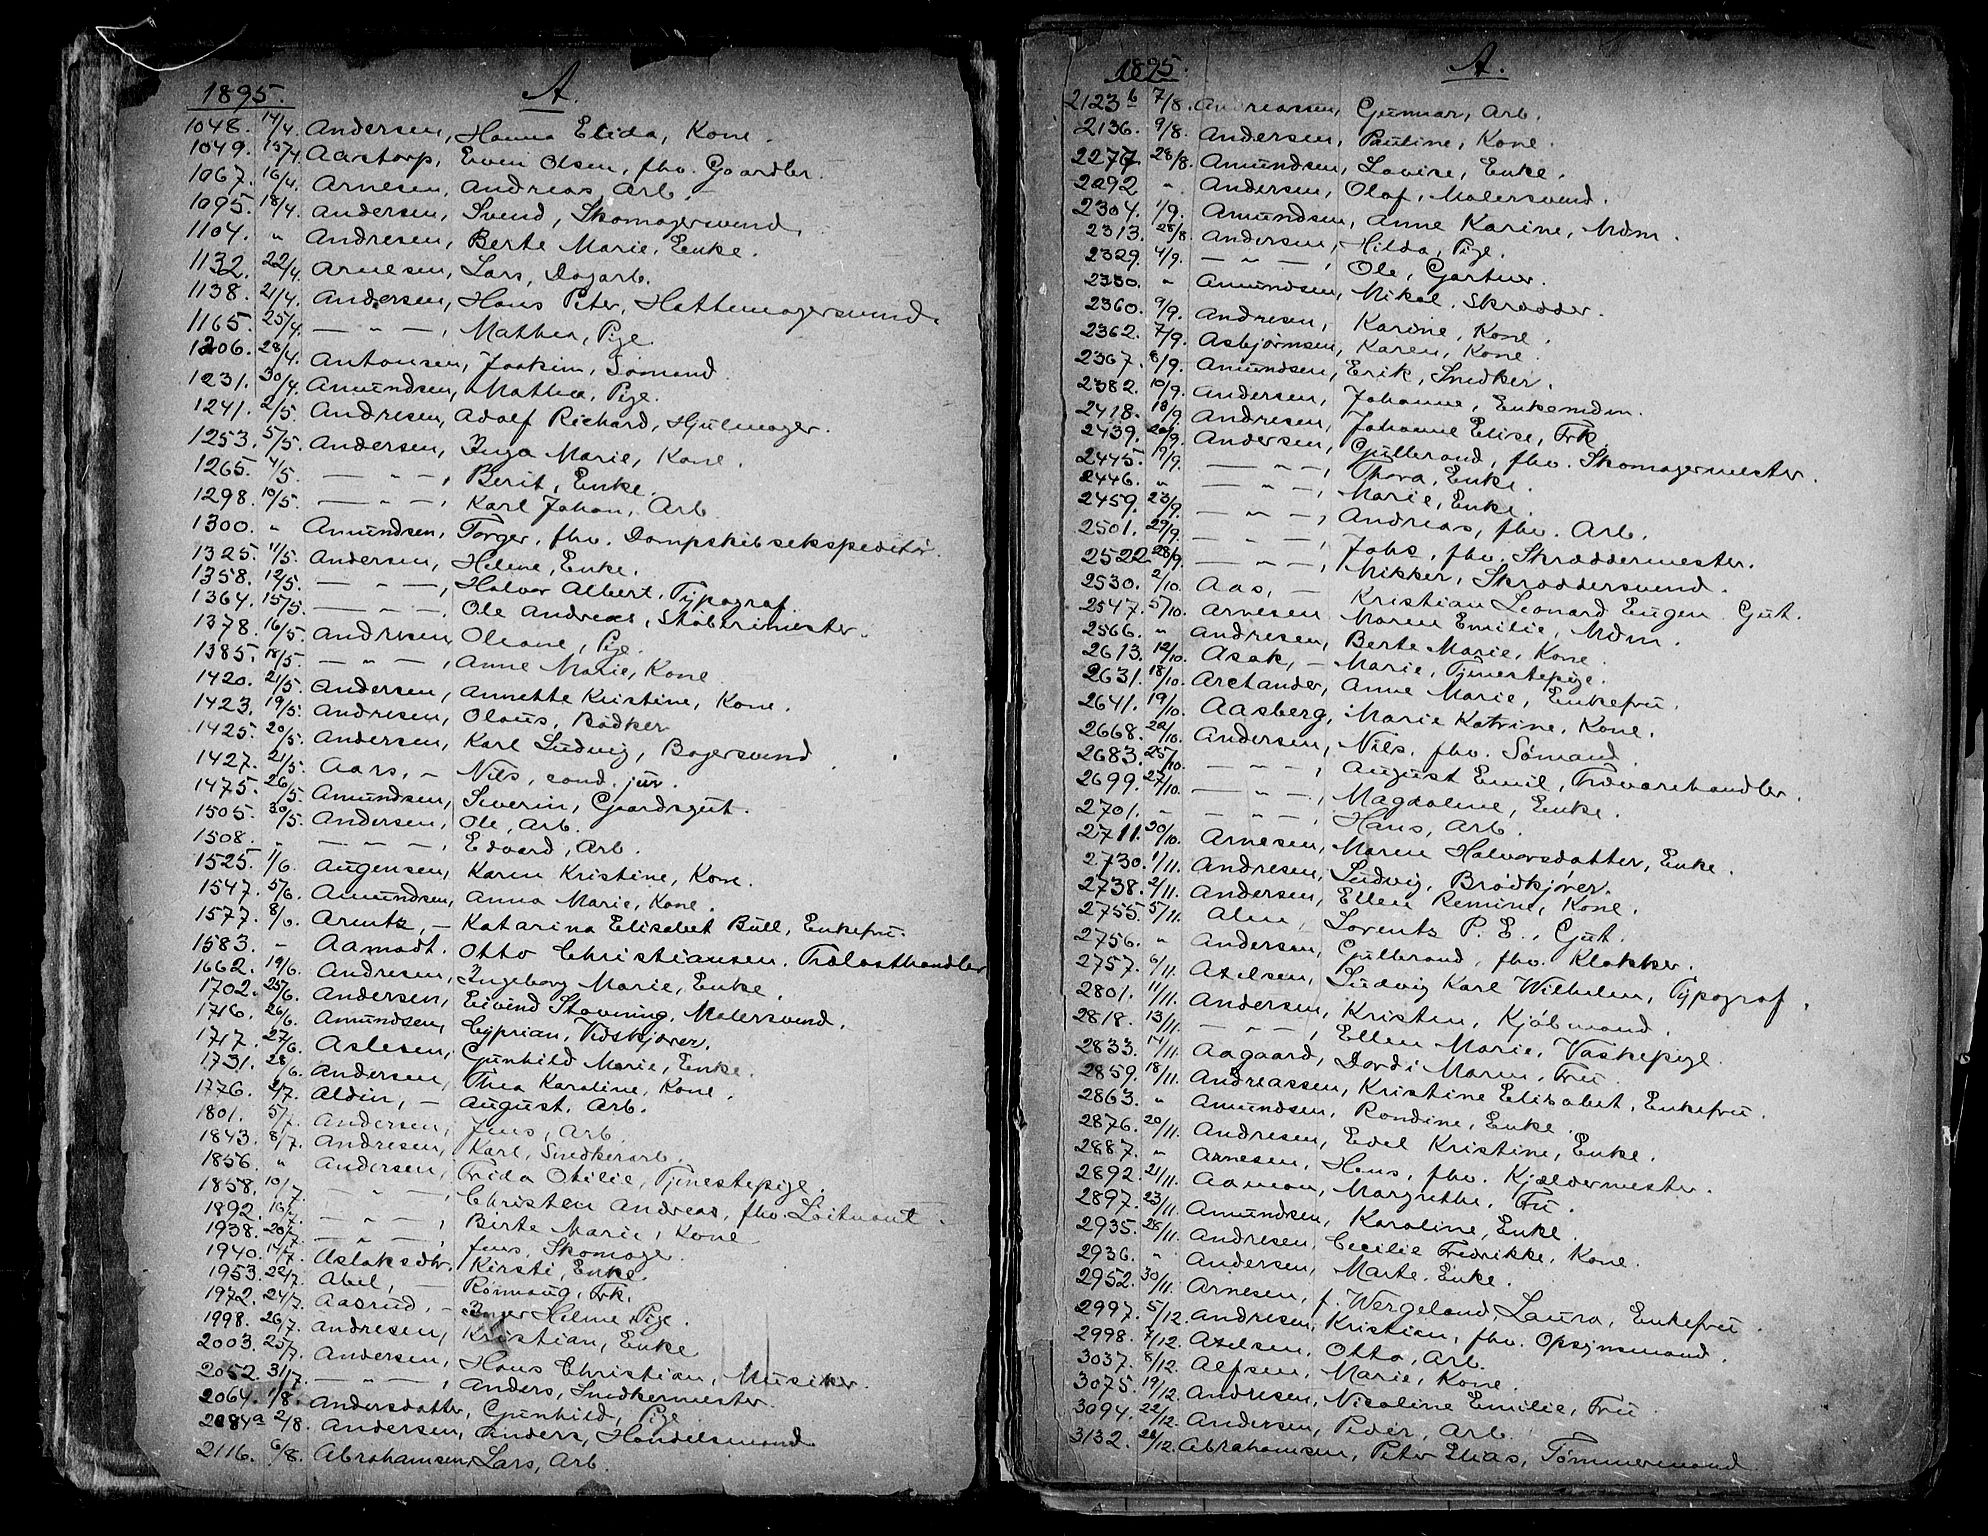 1895. A.
1048. 14/4. Andersen, Hanna Elida, Kone.
1049. 15/4. Aastorp, Even Olsen, fhv. Gaardbr.
1067. 16/4. Arnesen, Andreas, Arb.
1095. 18/4. Andersen, Svend, Skomagersvend.
1104. " Andresen, Berte Marie, Enke.
1132. 22/4. Arnesen, Lars, Dagarb.
1138. 21/4. Andersen, Hans Peter, Hattemagersvend.
1165. 25/4. — " —, Mathea, Pige
1206. 28/4. Antonsen, Joakim, Sømand
1231. 30/4. Amundsen, Mathea, Pige.
1241. 2/5. Andresen, Adolf Richard, Hjulmager.
1253. 5/5. Andersen, Inga Marie, Kone.
1265. 4/5. — " —, Berit, Enke.
1298. 10/5. — " —, Karl Johan, Arb.
1300. " Amundsen, Torger, fhv. Dampskibsekspeditør.
1325. 11/5. Andersen, Helene, Enke.
1358. 12/5. — " —, Halvor Albert, Typograf.
1364. 15/5. — " —, Ole Andreas, Støberimester.
1378. 16/5. Andresen, Oleane, Pige.
1385. 18/5. — " —, Anne Marie, Kone
1420. 21/5. Andersen, Annette Kristine, Kone.
1423. 19/5. Andresen, Olaus, Bødker
1425. 20/5. Andersen, Karl Ludvig, Bagersvend
1427. 21/5. Aars, – Nils, cand. jur.
1475. 26/5. Amundsen, Severin, Gaardsgut.
1505. 30/5. Andersen, Ole, Arb.
1508. " — " —, Edvard, Arb.
1525. 1/6. Augensen, Karen Kristine, Kone.
1547. 5/6. Amundsen, Anna Marie, Kone.
1577. 8/6. Arentz, – Katarina Elisabet Bull, Enkefru.
1583. " Aamodt. Otto Christiansen. Trælasthandler
1662. 19/6. Andresen, Ingeborg Marie, Enke.
1702. 25/6. Andersen, Eivind Stovering, Malersvend.
1716. 26/6. Amundsen, Cyprian, Vidskjører.
1717. 27/6. Aslesen, Gunhild Marie, Enke.
1731. 28/6. Andersen, Thea Karoline, Kone.
1776. 2/7. Aldin, – August, Arb.
1801. 5/7. Andersen, Jens, Arb.
1843. 8/7. Andresen, Karl, Snedkerarb.
1856. " Andersen, Frida Otilie, Tjenestepige.
1858. 10/7. — " —, Christen Andreas, fhv. Løitnant.
1892. 16/7. — " —, Berte Marie, Kone
1938. 20/7. — " —, Jens, Skomager.
1940. 14/7. Aslaksdtr. Kirsti, Enke.
1953. 22/7. Abel, – Rønnaug, Frk.
1972. 24/7. Aasrud, – Inger Helene, Pige.
1998. 26/7. Andresen, Kristian, Enke
2003. 25/7. Andersen, Hans Christian, Musiker.
2052. 31/7. — " —, Anders, Snedkermester.
2064. 1/8. Andersdatter, Gunhild, Pige
2084a 2/8. Andersen, Anders, Handelsmand
2116. 6/8. Abrahamsen, Lars, Arb.
1895. A.
2123b 7/8. Andreassen, Gunnar, Arb.
2136. 9/8. Andersen, Pauline, Kone.
2277 28/8. Amundsen, Lovise, Enke.
2292 " Andersen, Olaf, Malersvend.
2304. 1/9. Amundsen, Anne Karine, Mdm.
2313. 28/8. Andersen, Hilda, Pige.
2329. 4/9. — " —, Ole, Gartner.
2330. " Amundsen, Mikal. Skrædder.
2360. 9/9. Andresen, Karine, Kone.
2362. 7/9. Asbjørnsen, Karen, Kone.
2367. 8/9. Amundsen, Erik, Snedker.
2382. 10/9. Andersen, Johanne, Enkemdm.
2418. 18/9. Andresen, Johanne Elise, Frk.
2439. 20/9. Andersen, Gulbrand, fhv. Skomagermester.
2445. 19/9. — " —, Thora, Enke.
2446. " — " —, Marie, Enke.
2459. 23/9. — " —, Andreas, fhv. Arb.
2501. 29/9. — " —, Johs, fhv. Skræddermester.
2522 28/9. — " —, Mikkel, Skræddersvend.
2530. 2/10. Aas, – Kristian Leonard Eugen. Gut.
2547. 5/10. Arnesen Maren Emilie, Mdm.
2566. " Andresen, Berte Marie, Kone.
2613. 12/10. Asak, – Marie, Tjenestepige.
2631. 18/10. Arctander, Anne Marie, Enkefru.
2641. 19/10. Aasberg, Marie Katrine, Kone.
2668. 22/10. Andersen, Nils, fhv. Sømand.
2683. 25/10. — " —, August Emil, Frøvarehandler.
2699. 27/10. — " —, Magdalene, Enke.
2701. " — " —, Hans, Arb.
2711. 30/10. Arnesen, Maren Halvorsdatter, Enke.
2730. 1/11. Andresen, Ludvig, Brødkjører.
2738. 2/11. Andersen, Ellen Remine, Kone.
2755. 5/11. Alm, Lorents P. E., Gut.
2756. " Andersen, Gulbrand, fhv. Klokker.
2757. 6/11. Axelsen, Ludvig Karl Wilhelm, Typograf.
2801. 11/11. Andersen, Kristen, Kjøbmand.
2818. 13/11. — " —, Ellen Marie, Vaskepige.
2833. 14/11. Aagaard, Dordi Maren, Fru.
2859. 18/11. Andreassen, Kristine Elisabet, Enkefru.
2863. " Amundsen, Rondine, Enke.
2876. 20/11. Andresen, Edel Kristine, Enke.
2887. " Arnesen, Hans, fhv. Kjældermester.
2892. 21/11. Aaman, Margrethe, Fru.
2897. 23/11. Amundsen, Karoline, Enke.
2935. 28/11. Andresen, Cecilie Fredrikke, Kone.
2936. " Andersen, Marte, Enke.
2952. 30/11. Arnesen, f. Wergeland, Laura, Enkefru.
2997. 5/12. Andresen, Kristian, fhv. Opsynsmand.
2998. 7/12. Axelsen, Otto, Arb.
3037. 8/12. Alfsen, Marie, Kone.
3075. 19/12. Andresen, Nicoline Emilie, Fru
3094. 22/12. Andersen, Peder, Arb.
3132. 26/12. Abrahamsen, Peter Elias, Tømmermand